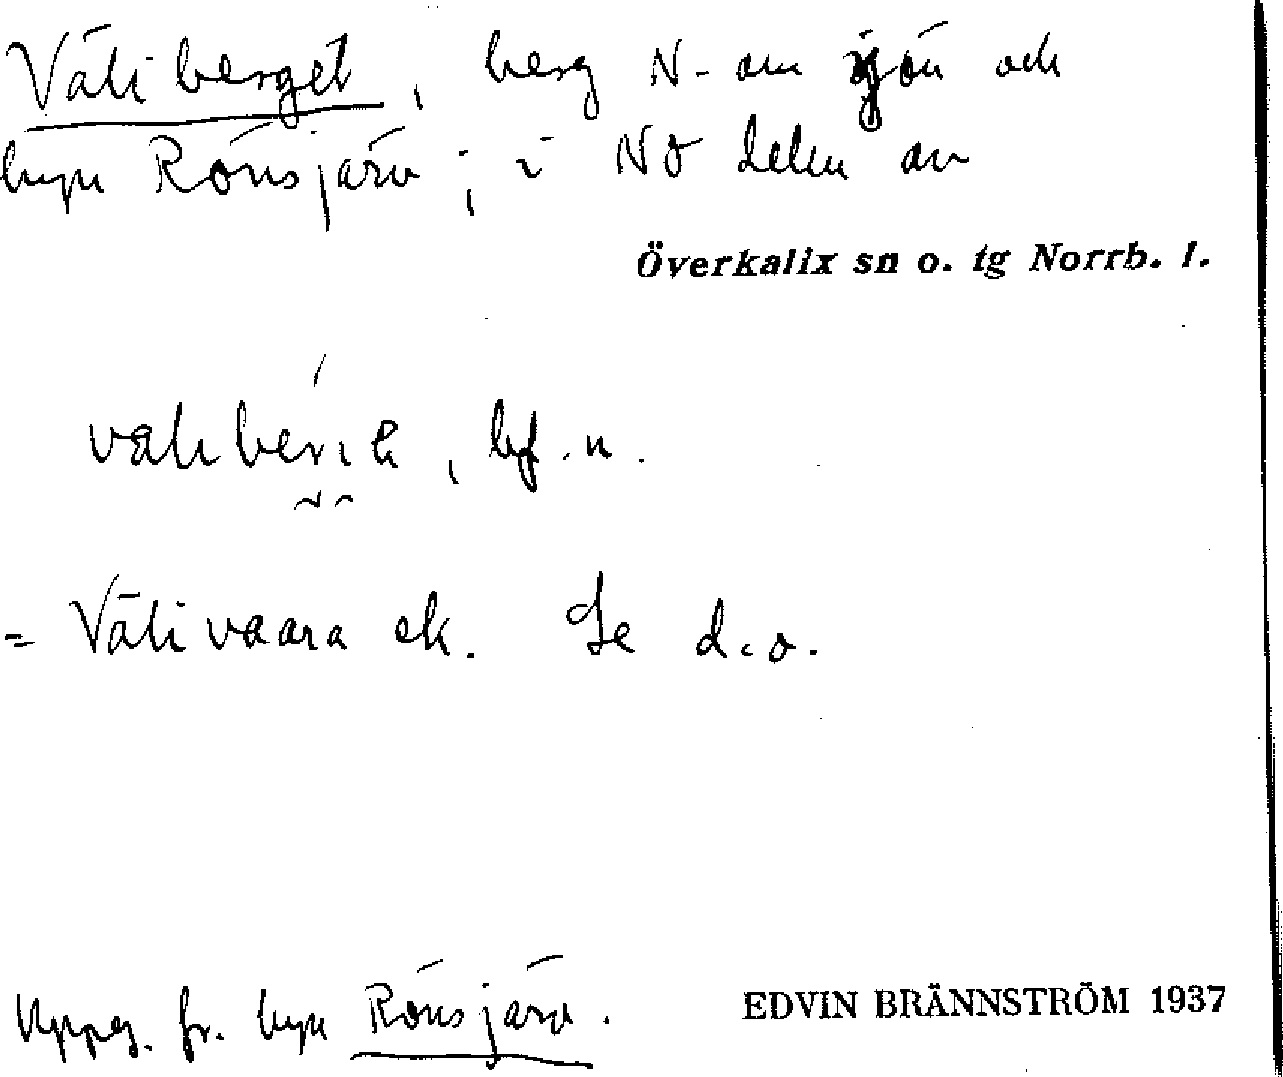 Väliberget, berg N. om sjön och
byn Rönsjärv; i NO delen av
Överkalix sn o. tg Norrb. l.
bf. n.
= Välivaara ek. Se d.o.
Uppg. fr. byn Rönsjärv.
EDVIN BRÄNNSTRÖM 1937